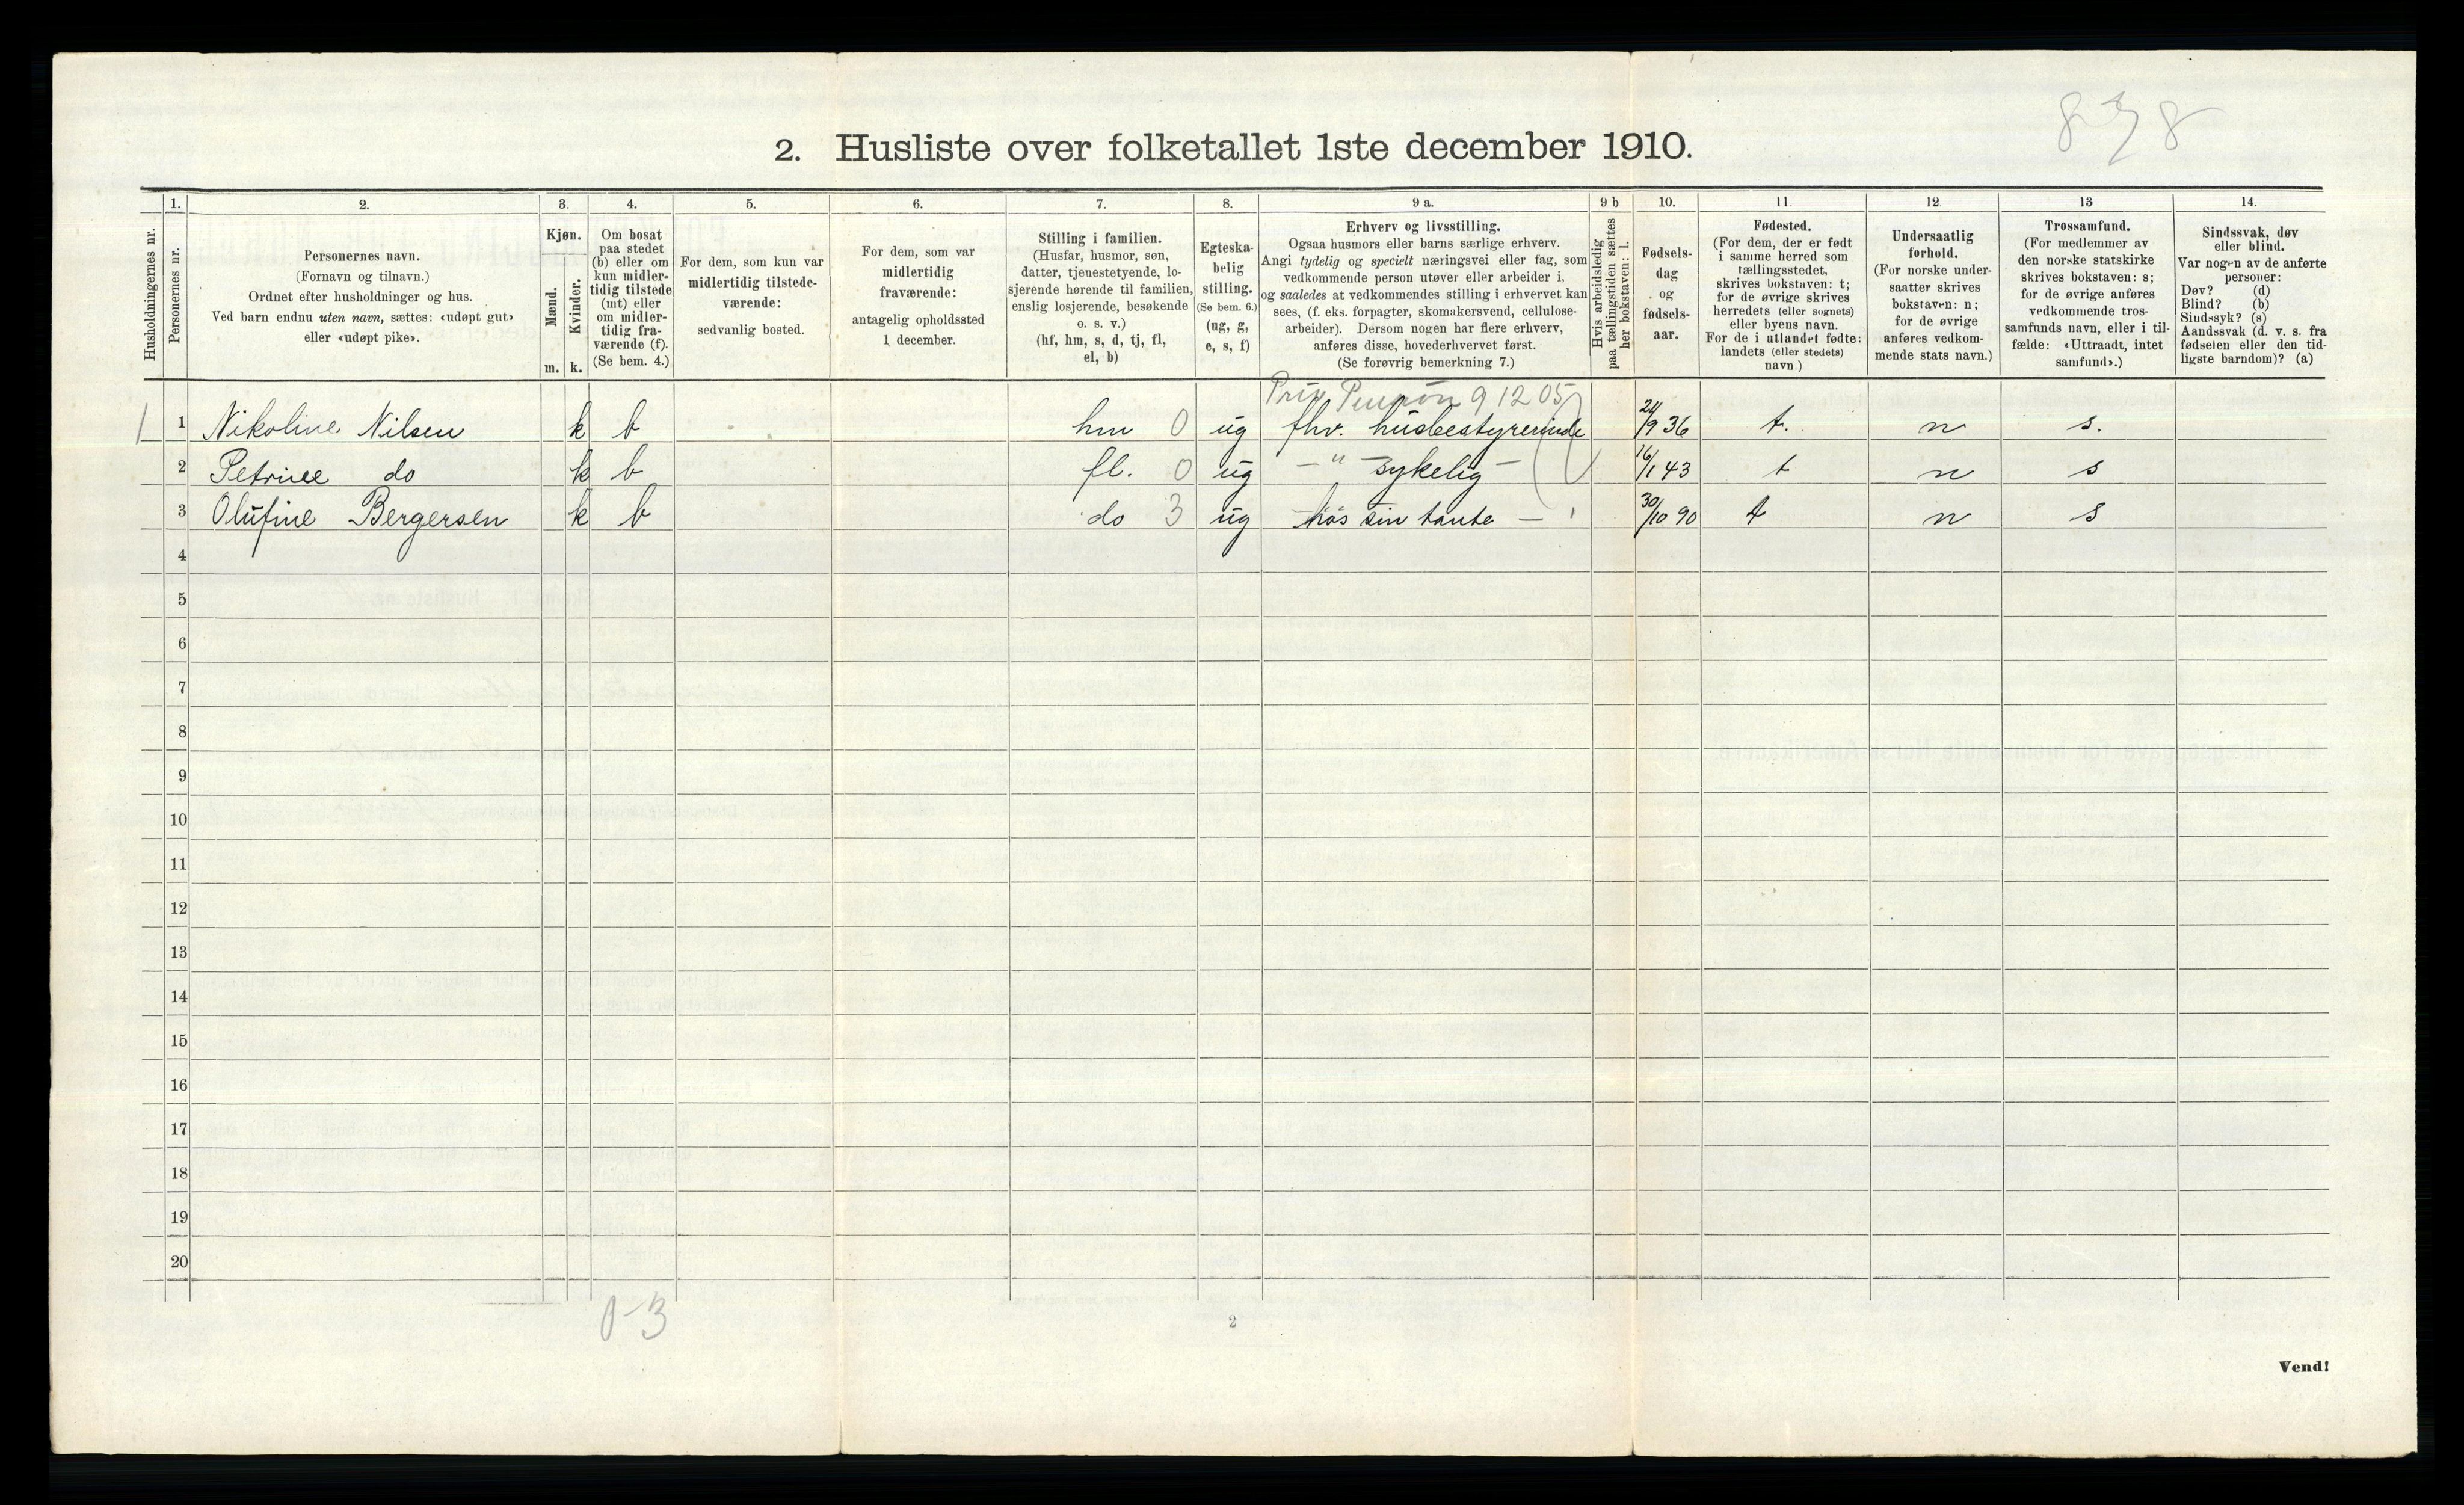 838
2. Husliste over folketallet 1ste december 1910.
Husholdningernes nr.
1.
Personernes nr.
2.
Personernes navn.
(Fornavn og tilnavn.)
Ordnet efter husholdninger og hus.
Ved barn endnu uten navn, sættes: «udøpt gut»
eller «udøpt pike».
3.
Kjøn.
Mænd.
Kvinder.
m. k.
4.
Om bosat
paa stedet
(b) eller om
kun midler-
tidig tilstede
(mt) eller
om midler-
tidig fra-
værende (f).
(Se bem. 4.)
5.
For dem, som kun var
midlertidig tilstede-
værende:
sedvanlig bosted.
6.
For dem, som var
midlertidig
fraværende:
antagelig opholdssted
1 december.
7.
Stilling i familien.
(Husfar, husmor, søn,
datter, tjenestetyende, lo-
sjerende hørende til familien,
enslig losjerende, besøkende
o. s. v.)
(hf, hm, s, d, tj, fl,
el, b)
8.
Egteska-
belig
stilling.
(Se bem. 6.)
(ug, g,
e, s, f)
9 a.
Erhverv og livsstilling.
Ogsaa husmors eller barns særlige erhverv.
Angi tydelig og specielt næringsvei eller fag, som
vedkommende person utøver eller arbeider i,
og saaledes at vedkommendes stilling i erhvervet kan
sees, (f. eks. forpagter, skomakersvend, cellulose-
arbeider). Dersom nogen har flere erhverv,
anføres disse, hovederhvervet først.
(Se forøvrig bemerkning 7.)
9 b
Hvis arbeidsledig
paa tællingstiden sættes
her bokstaven: l.
10.
Fødsels-
dag
og
fødsels-
aar.
11.
Fødested.
(For dem, der er født
i samme herred som
tællingsstedet,
skrives bokstaven: t;
for de øvrige skrives
herredets (eller sognets)
eller byens navn.
For de i utlandet fødte:
landets (eller stedets)
navn.)
12.
Undersaatlig
forhold.
(For norske under-
saatter skrives
bokstaven: n;
for de øvrige
anføres vedkom-
mende stats navn.)
13
Trossamfund.
(For medlemmer av
den norske statskirke
skrives bokstaven: s;
for de øvrige anføres
vedkommende tros-
samfunds navn, eller i til-
fælde: «Uttraadt, intet
samfund».)
14.
Sindssvak, døv
eller blind.
Var nogen av de anførte
personer:
Døv? (d)
Blind? (b)
Sindssyk? (s)
Aandssvak (d. v. s. fra
fødselen eller den tid-
ligste barndom)? (a)
Priv Pension 9 12 05
1 1 Nikoline Nilsen k b hm 0 ug fhv. husbestyrerinde 21/9 36 t. n s.
2 Petrine do k b fl. 0 ug — " — sykelig — 16/1 43 t n s
3 Olufine Bergersen k b do 3 ug hos sin tante — " 30/10 90 t n s
4
5
6
7
8
9
10
11
12
13
14
15
16
17
18
19
20
0-3
2
Vend!